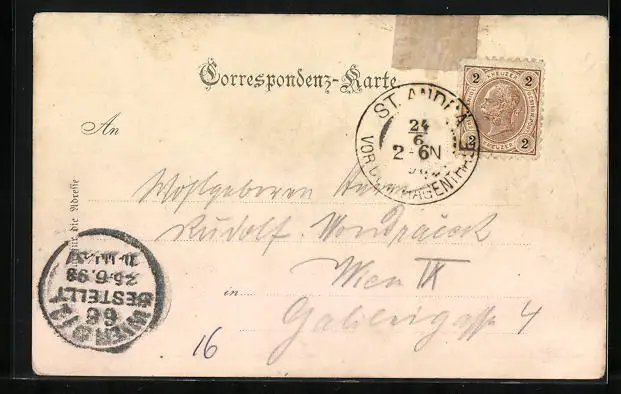 Correspondenz-Karte
2 KREUZER 2
2 KREUZER 2
ST. ANDRÄ
24
6
2-6N
VOR D. HAGENTHALE
An
Wohlgeboren Herrn
Rudolf
Wien IX
in
4
für die Adresse
WIEN
66
BESTELLT
25.6.98
16